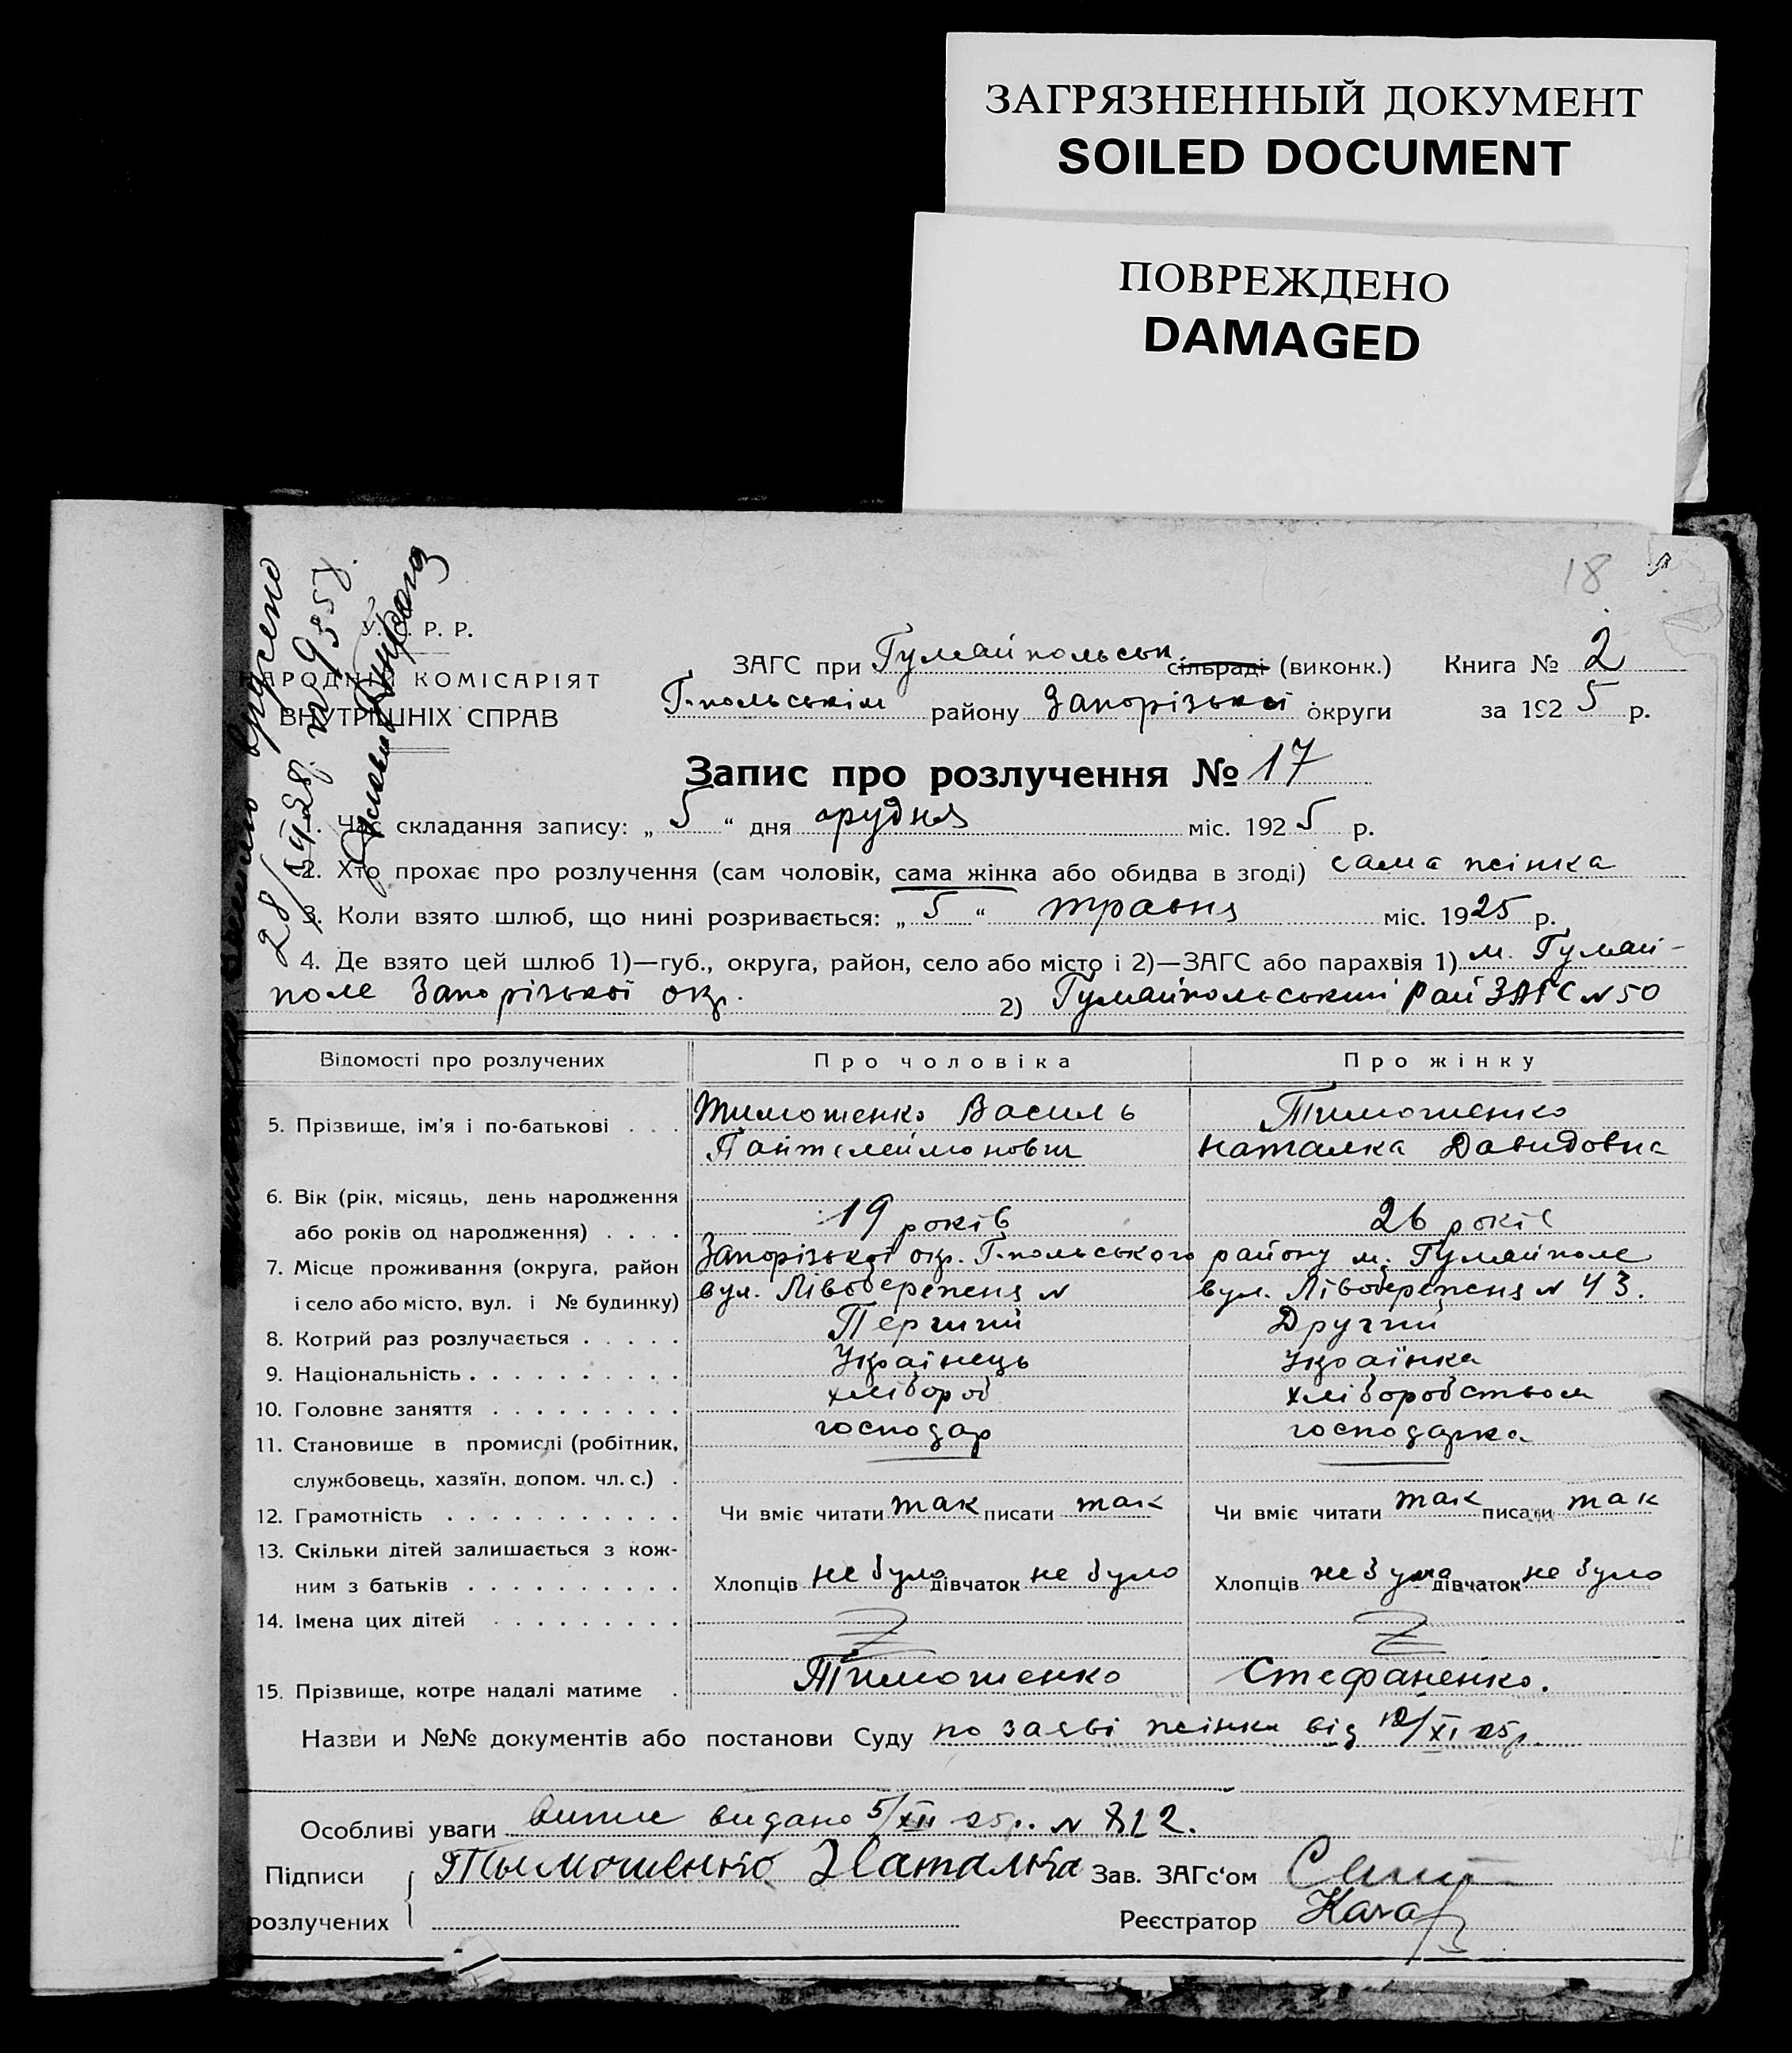 ЗАГРЯЗНЕННЫЙ ДОКУМЕНТ
SOILED DOCUMENT
ПОВРЕЖДЕНО
DAMAGED
18
У. Р. Р.
НАРОДНІЙ КОМІСАРІЯТ
ВНУТРІШНІХ СПРАВ
ЗАГС при Гуляйпольськ. сільраді (виконк.) Книга № 2
Г-польськім району Запорізької округи за 1925 р.
Запис про розлучення № 17
1. Час складання запису: „ 5 “ дня грудня міс. 1925 р.
2. Хто прохає про розлучення (сам чоловік, сама жінка або обидва в згоді) сама жінка
3. Коли взято шлюб, що нині розривається: „ 5 “ травня міс. 1925 р.
4. Де взято цей шлюб 1)—губ., округа, район, село або місто і 2)—ЗАГС або парахвія 1) м. Гуляй-
поле Запорізької окр. 2) Гуляйпольський РайЗАГС № 50
Відомості про розлучених Про чоловіка Про жінку
5. Прізвище, ім'я і по-батькові . . . Тимошенко Василь Тимошенко
Пантелеймонович Наталка Давидовна
6. Вік (рік, місяць, день народження
або років од народження) . . . . 19 років 26 років
7. Місце проживання (округа, район Запорізької окр. Г-польського району м. Гуляйполе
і село або місто, вул. і № будинку) вул. Лівобережня № вул. Лівобережня № 43.
8. Котрий раз розлучається . . . . . Перший Другий
9. Національність . . . . . . . . . . Українець Українка
10. Головне заняття . . . . . . . . . хлібороб хліборобством
11. Становище в промислі (робітник, господар господарка
службовець, хазяїн, допом. чл. с.) .
12. Грамотність . . . . . . . . . . . Чи вміє читати так писати так Чи вміє читати так писати так
13. Скільки дітей залишається з кож-
ним з батьків . . . . . . . . . . Хлопців не було дівчаток не було Хлопців не було дівчаток не було
14. Імена цих дітей . . . . . . . . .
15. Прізвище, котре надалі матиме . Тимошенко Стефаненко.
Назви и №№ документів або постанови Суду по заяві жінки від 12/XI 25р.
Особливі уваги витяг видано 5/XII 25р. № 812.
Підписи Тымошенко Наталка Зав. ЗАГс'ом
розлучених Реєстратор